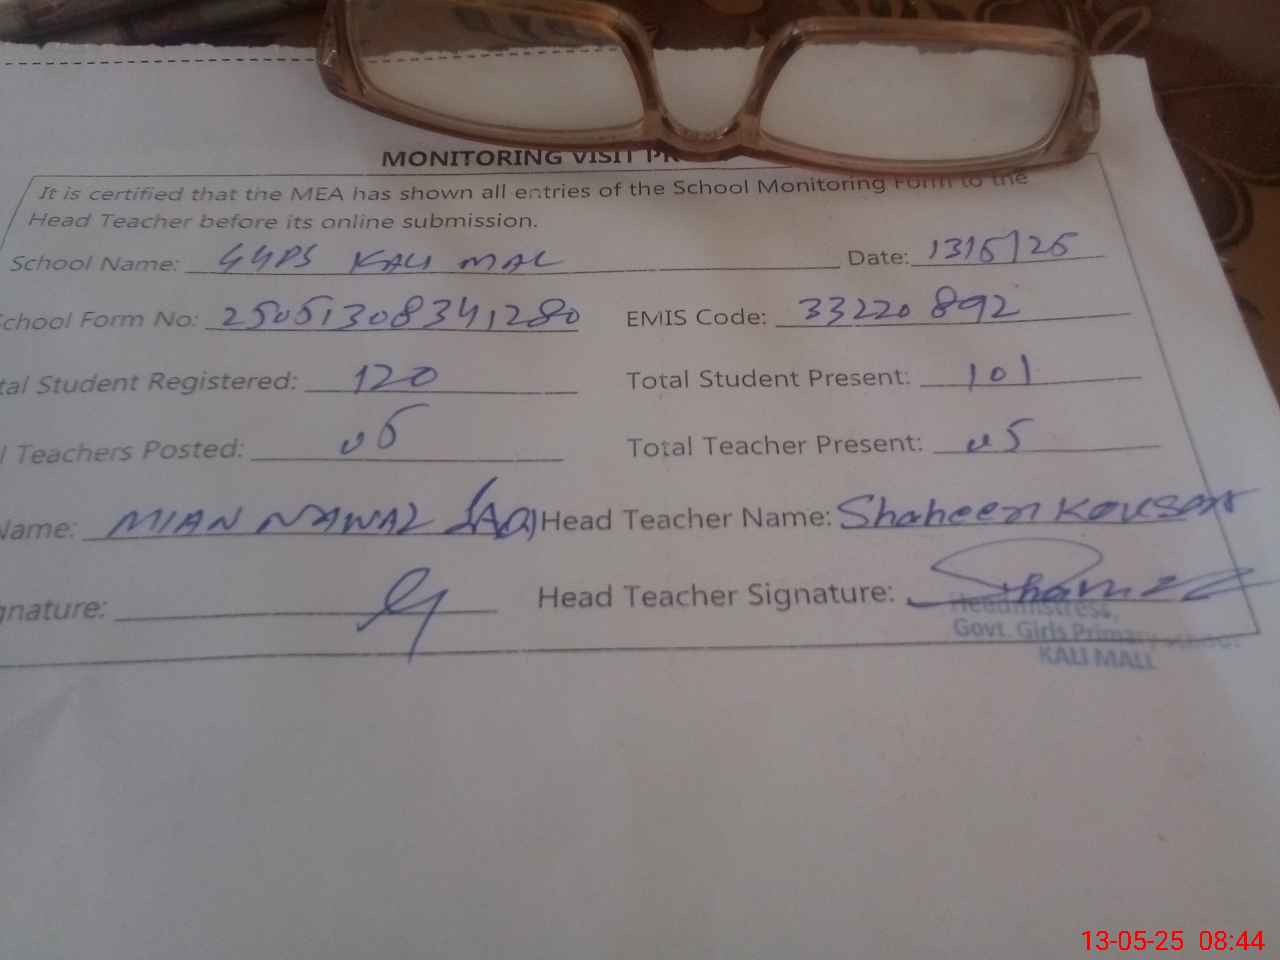 MONITORING VISIT PR
It is certified that the MEA has shown all entries of the School Monitoring Form to the
Head Teacher before its online submission.
School Name: GGPS KALI MAL Date: 13/5/25
School Form No: 25051308341280 EMIS Code: 33220892
tal Student Registered: 120 Total Student Present: 101
l Teachers Posted: 05 Total Teacher Present: 05
Name: MIAN NAWAZ Head Teacher Name: Shaheen Kousar
gnature: Head Teacher Signature:
Headmistress,
Govt. Girls Primary School
KALI MALL
13-05-25 08:44